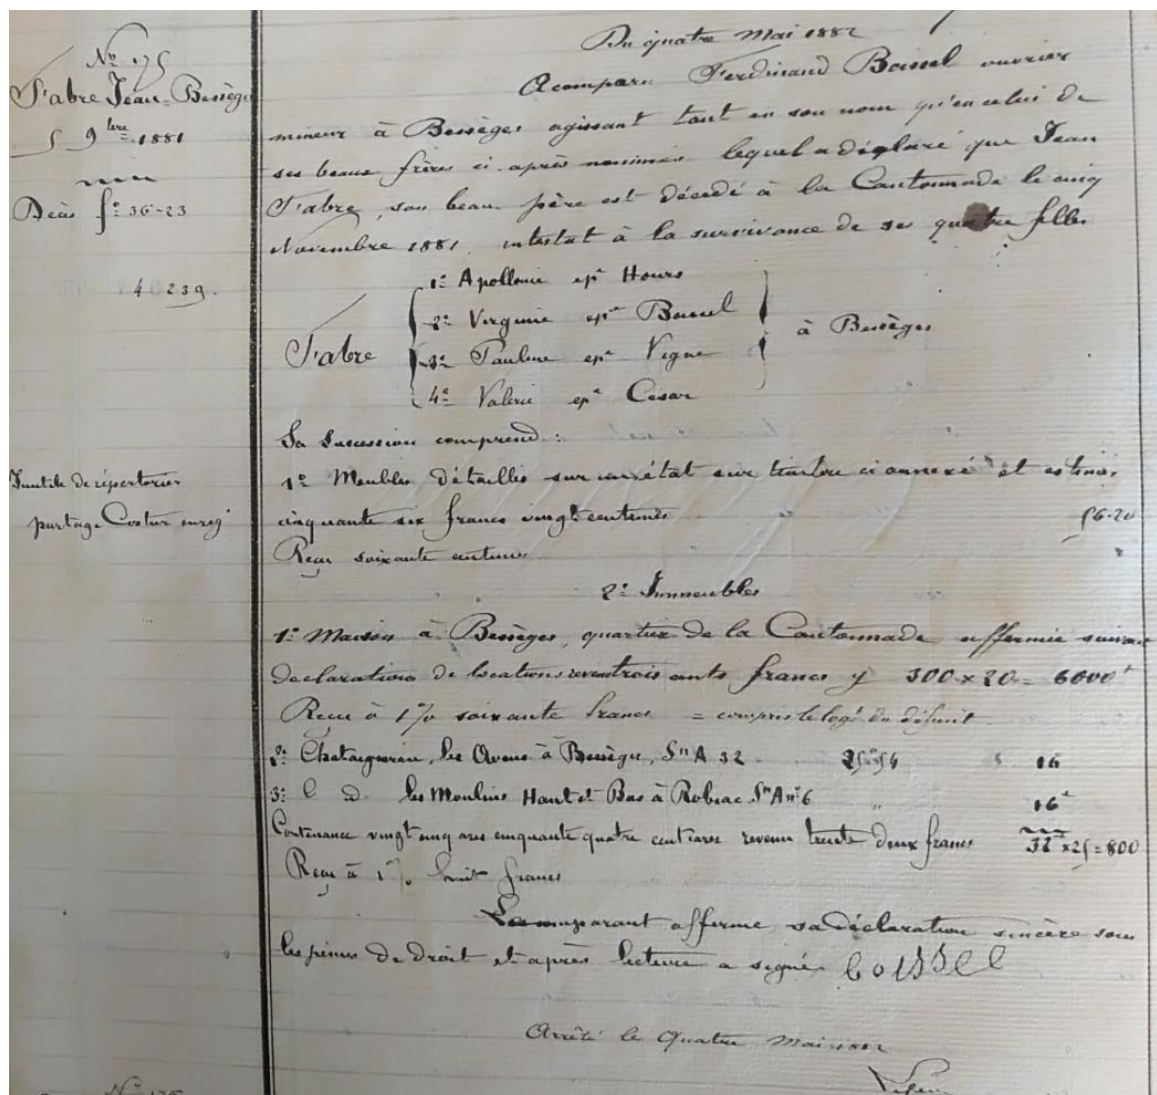 Nº 175
Fabre Jean-Bessèges
5 9bre 1881
Décès fº 36-23
4 239.
Inutile de répertorier
partage Costur enreg
Du quatre Mai 1882
A comparu Ferdinand Boissel ouvrier
mineur à Bessèges agissant tant en son nom qu'en celui de
ses beaux frères ci-après nommés lequel a déclaré que Jean
Fabre, son beau-père est décédé à la Cantonnade le cinq
Novembre 1881, intestat à la survivance de ses quatre filles
1º Apollonie epse Hours
2º Virginie epse Boissel
Fabre
à Bessèges
3º Pauline epse Vigne
4º Valérie epse César
Sa succession comprend :
1º Meubles détaillés sur un état sur timbre ci annexé et estimés
cinquante six francs vingt centimes 56-20
Reçu soixante centimes
2º Immeubles
1º Maison à Bessèges, quartier de la Cantonnade affermée suivant
declaration de locations trois cents francs 300 x 20 = 6000
Reçu à 1% soixante francs = compris le logt du défunt.
2º Chataigneraie, les à Bessèges, Son A 32 25a54 16
3º d. les Moulins Haut et Bas à Robiac Son A nº 6 " 16
Contenance vingt cinq ares cinquante quatre centiares revenu trente deux francs 32 x 25 = 800
Reçu à 1% huit francs
Le comparant afferme sa déclaration sincère sous
les peines de droit et après lecture a signé. boissel
Arrêté le Quatre Mai 1882
Nº 176